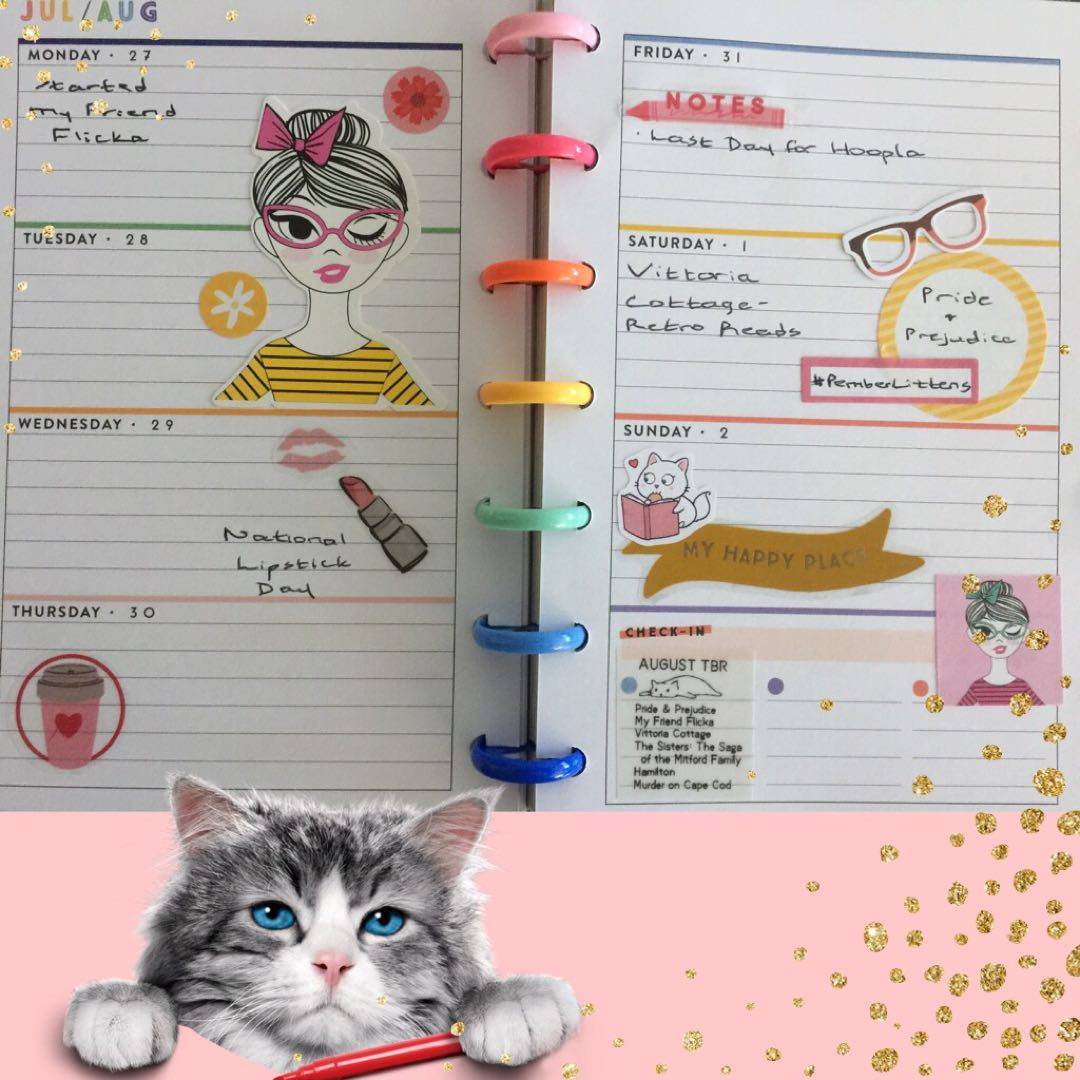 JUL/AUG
MONDAY · 27
Started
My Friend
Flicka
TUESDAY · 28
WEDNESDAY · 29
National
Lipstick
Day
THURSDAY · 30
FRIDAY · 31
NOTES
· Last Day for Hoopla
SATURDAY · 1
Vittoria
Cottage-
Retro Reads
Pride
+
Prejudice
#PemberLittens
SUNDAY · 2
MY HAPPY PLACE
CHECK-IN
AUGUST TBR
Pride & Prejudice
My Friend Flicka
Vittoria Cottage
The Sisters: The Saga
of the Mitford Family
Hamilton
Murder on Cape Cod